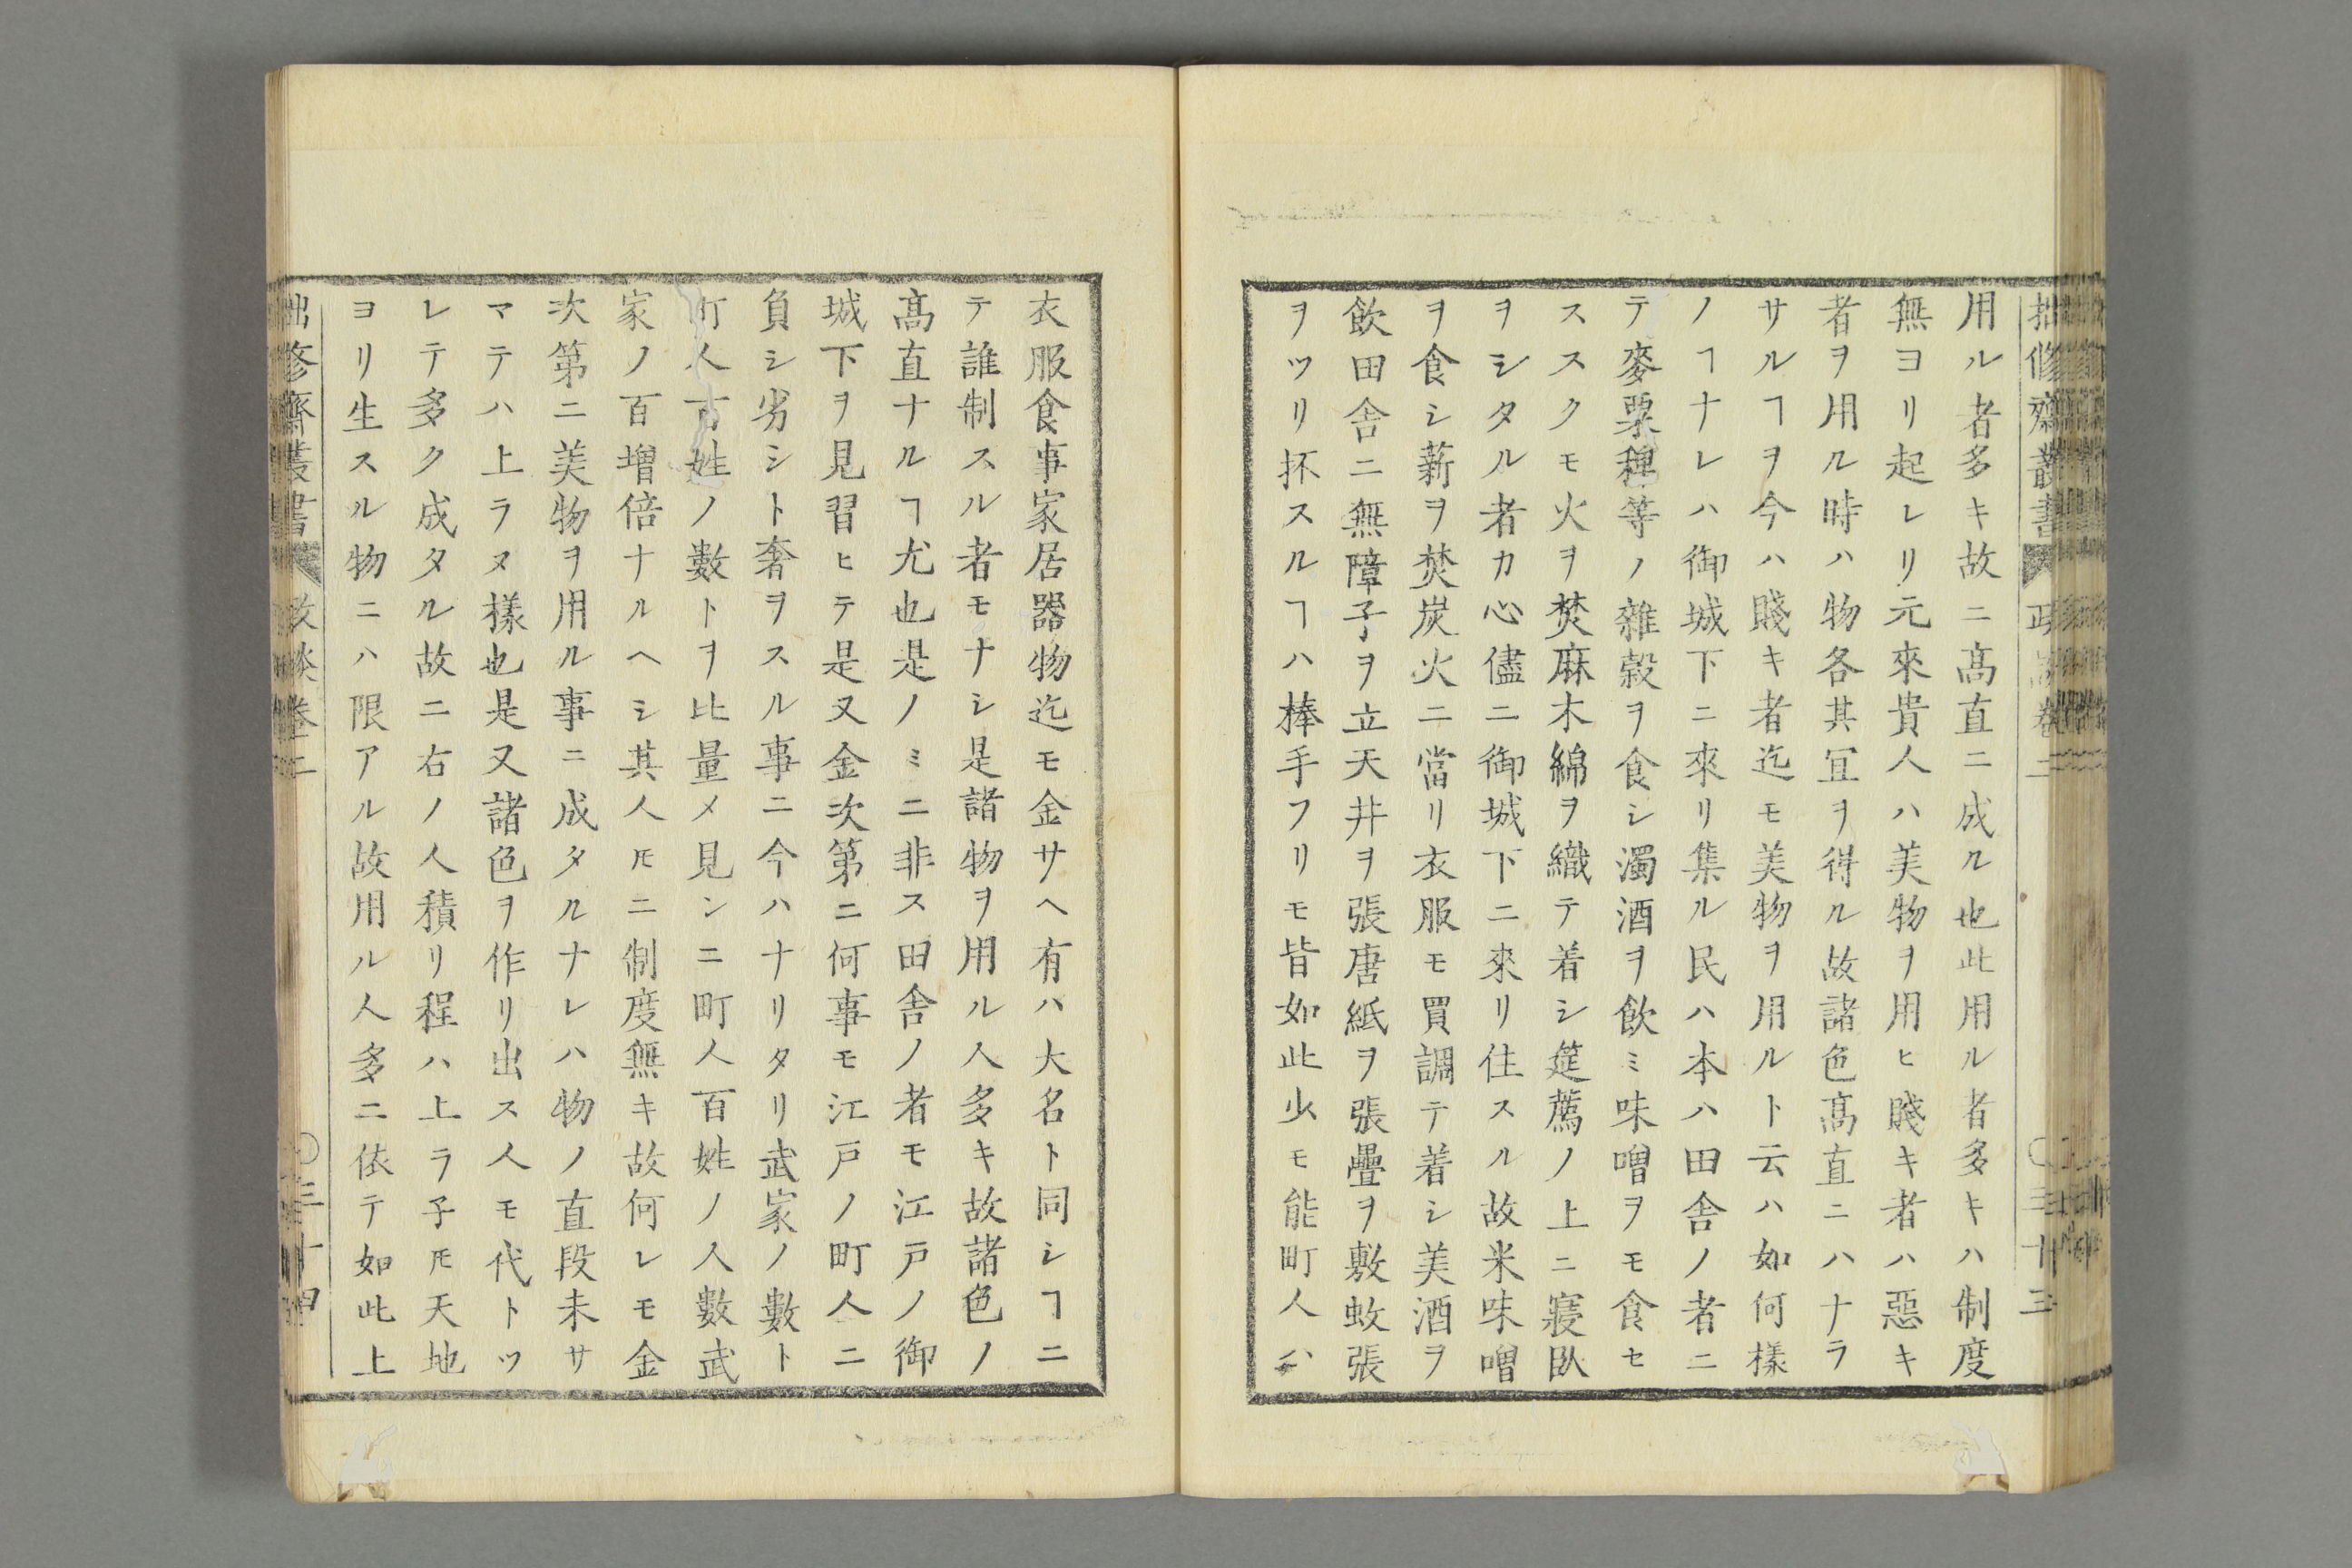 拙修齋叢書 政談卷二 〇三十三
用ル者多キ故ニ髙直ニ成ル也此用ル者多キハ制度
無ヨリ起レリ元來貴人ハ美物ヲ用ヒ賤キ者ハ惡キ
者ヲ用ル時ハ物各其冝ヲ得ル故諸色髙直ニハナラ
サルヿヲ今ハ賤キ者迄モ美物ヲ用ルト云ハ如何樣
ノヿナレハ御城下ニ來リ集ル民ハ本ハ田舎ノ者ニ
テ麥粟稗等ノ雜穀ヲ食シ濁酒ヲ飲ミ味噌ヲモ食セ
ススクモ火ヲ焚麻木綿ヲ織テ着シ筵薦ノ上ニ寢臥
ヲシタル者カ心儘ニ御城下ニ來リ住スル故米味噌
ヲ食シ薪ヲ焚炭火ニ當リ衣服モ買調テ着シ美酒ヲ
飲田舎ニ無障子ヲ立天井ヲ張唐紙ヲ張疊ヲ敷蚊張
ヲツリ抔スルヿハ棒手フリモ皆如此少モ能町人ハ
衣服食事家居器物迄モ金サヘ有ハ大名ト同シヿニ
テ誰制スル者モナシ是諸物ヲ用ル人多キ故諸色ノ
髙直ナルヿ尤也是ノミニ非ス田舎ノ者モ江戸ノ御
城下ヲ見習ヒテ是又金次第ニ何事モ江戸ノ町人ニ
負シ劣シト奢ヲスル事ニ今ハナリタリ武家ノ數ト
町人百姓ノ數トヲ比量メ見ンニ町人百姓ノ人數武
家ノ百増倍ナルヘシ其人𪜈ニ制度無キ故何レモ金
次第ニ美物ヲ用ル事ニ成タルナレハ物ノ直段未サ
マテハ上ラヌ樣也是又諸色ヲ作リ出ス人モ代トツ
レテ多ク成タル故ニ右ノ人積リ程ハ上ラ子𪜈天地
ヨリ生スル物ニハ限アル故用ル人多ニ依テ如此上
拙修齋叢書 政談卷二 〇三十四